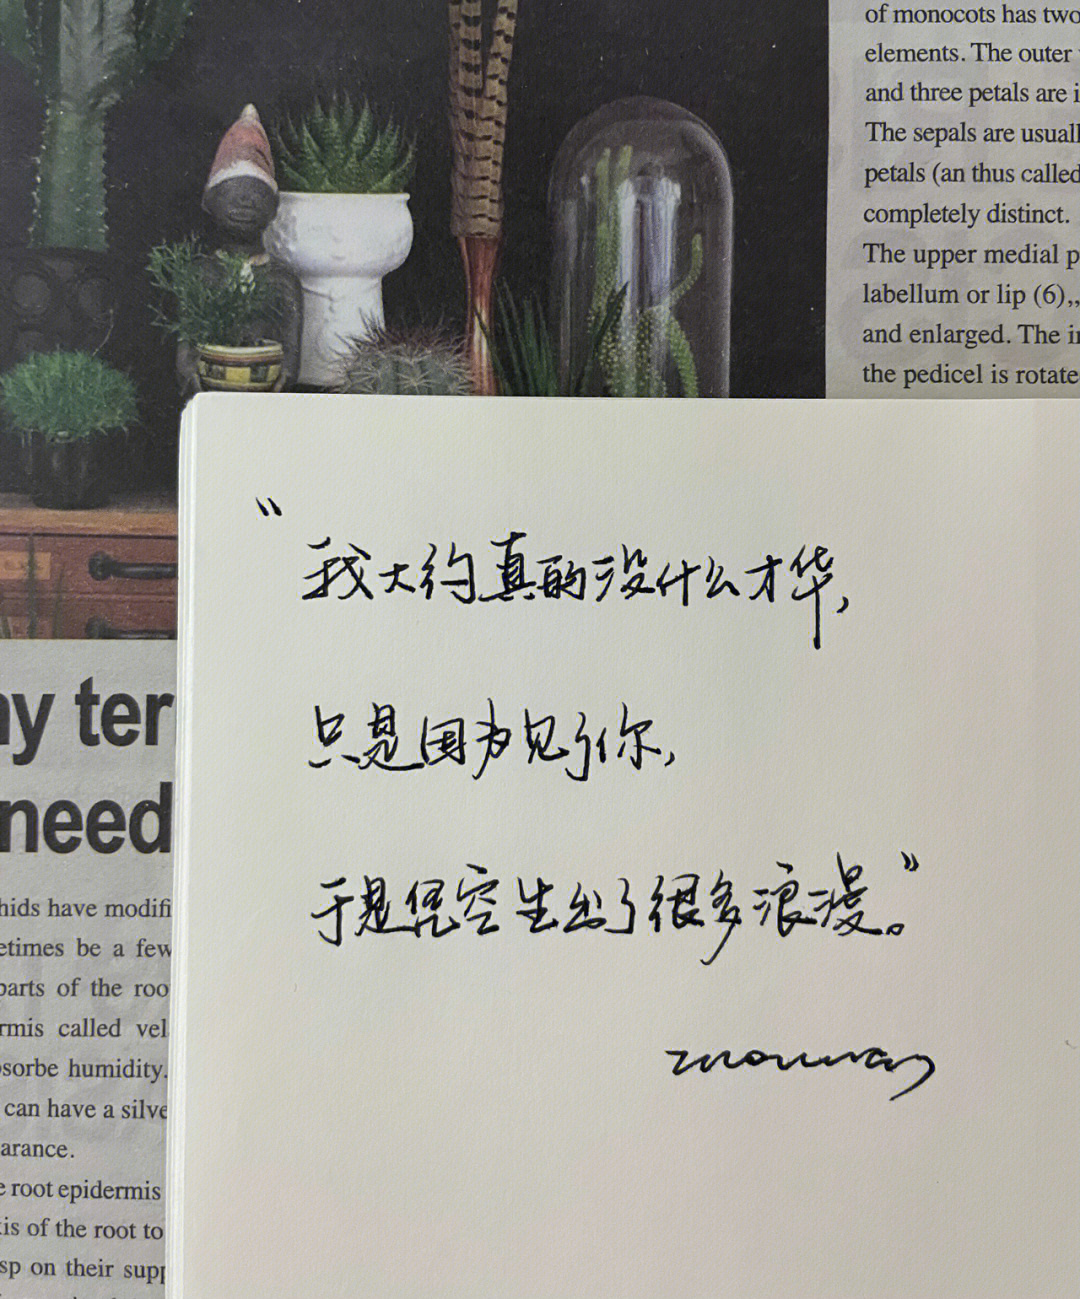 of monocots has two
elements. The outer
and three petals are i
The sepals are usuall
petals (an thus called
completely distinct.
The upper medial p
labellum or lip (6),,
and enlarged. The i
the pedicel is rotate
“我大约真的没什么才华，
只是因为见了你，
于是凭空生出了很多浪漫。”
ny ter
need
hids have modifi
etimes be a few
parts of the roo
rmis called vel
sorbe humidity.
can have a silve
arance.
e root epidermis
is of the root to
sp on their supp